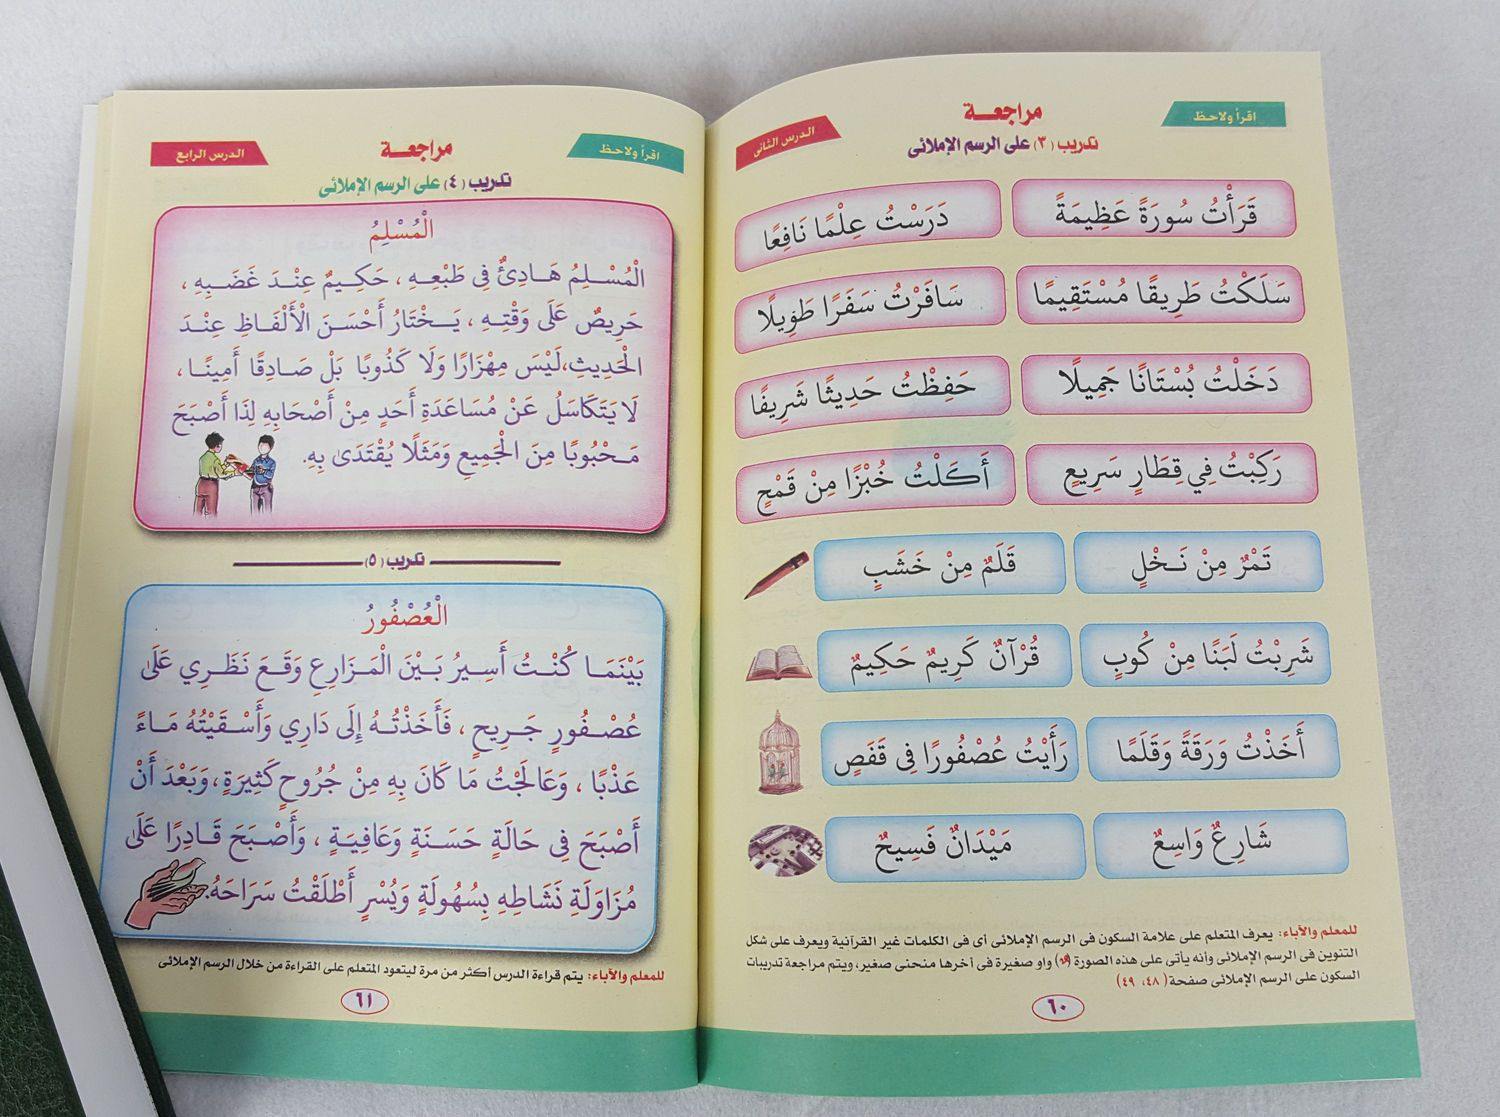 اقرأ ولاحظ
مراجعـــة
الدرس الثانى
تدريب (٣) على الرسم الإملائى
قَرَأْتُ سُورَةً عَظِيمَةً
دَرَسْتُ عِلْمًا نَافِعًا
سَلَكْتُ طَرِيقًا مُسْتَقِيمًا
سَافَرْتُ سَفَرًا طَوِيلًا
دَخَلْتُ بُسْتَانًا جَمِيلًا
حَفِظْتُ حَدِيثًا شَرِيفًا
رَكِبْتُ فِي قِطَارٍ سَرِيعٍ
أَكَلْتُ خُبْزًا مِنْ قَمْحٍ
تَمْرٌ مِنْ نَخْلٍ
قَلَمٌ مِنْ خَشَبٍ
شَرِبْتُ لَبَنًا مِنْ كُوبٍ
قُرْآنٌ كَرِيمٌ حَكِيمٌ
أَخَذْتُ وَرَقَةً وَقَلَمًا
رَأَيْتُ عُصْفُورًا فِى قَفَصٍ
شَارِعٌ وَاسِعٌ
مَيْدَانٌ فَسِيحٌ
للمعلم والآباء: يعرف المتعلم على علامة السكون فى الرسم الإملائى أى فى الكلمات غير القرآنية ويعرف على شكل
التنوين فى الرسم الإملائى وأنه يأتى على هذه الصورة (ـٌ) واو صغيرة فى أخرها منحنى صغير، ويتم مراجعة تدريبات
السكون على الرسم الإملائى صفحة (٤٨، ٤٩)
٦٠
اقرأ ولاحظ
مراجعـــة
الدرس الرابع
تدريب (٤) على الرسم الإملائى
الْمُسْلِمُ
الْمُسْـلِمُ هَـادِئٌ فِى طَبْعِـهِ ، حَكِـيمٌ عِنْـدَ غَضَـبِهِ ،
حَرِيصٌ عَلَى وَقْتِـهِ ، يَـخْتَارُ أَحْسَنَ الْأَلْفَـاظِ عِنْـدَ
الْحَدِيثِ،لَيْسَ مِهْزَارًا وَلَا كَذُوبًا بَلْ صَـادِقًا أَمِينًـا ،
لَا يَتَكَاسَلُ عَنْ مُسَاعَدَةِ أَحَدٍ مِنْ أَصْحَابِهِ لِذَا أَصْبَحَ
مَـحْبُوبًا مِنَ الْجَمِيعِ وَمَثَلًا يُقْتَدَى بِهِ.
تدريب (٥)
الْعُصْفُورُ
بَيْنَمَـا كُنْـتُ أَسِيرُ بَـيْنَ الْـمَزَارِعِ وَقَـعَ نَظَـرِي عَلَى
عُصْـفُورٍ جَـرِيحٍ ، فَأَخَذْتُـهُ إِلَى دَارِي وَأَسْـقَيْتُهُ مَـاءً
عَذْبًا ، وَعَالَجْتُ مَا كَانَ بِهِ مِنْ جُرُوحٍ كَثِيرَةٍ،وَبَعْدَ أَنْ
أَصْبَحَ فِى حَالَةٍ حَسَـنَةٍ وَعَافِيَـةٍ ، وَأَصْـبَحَ قَـادِرًا عَلَى
مُزَاوَلَةِ نَشَاطِهِ بِسُهُولَةٍ وَيُسْرٍ أَطْلَقْتُ سَرَاحَهُ.
للمعلم والآباء: يتم قراءة الدرس أكثر من مرة ليتعود المتعلم على القراءة من خلال الرسم الإملائى
٦١